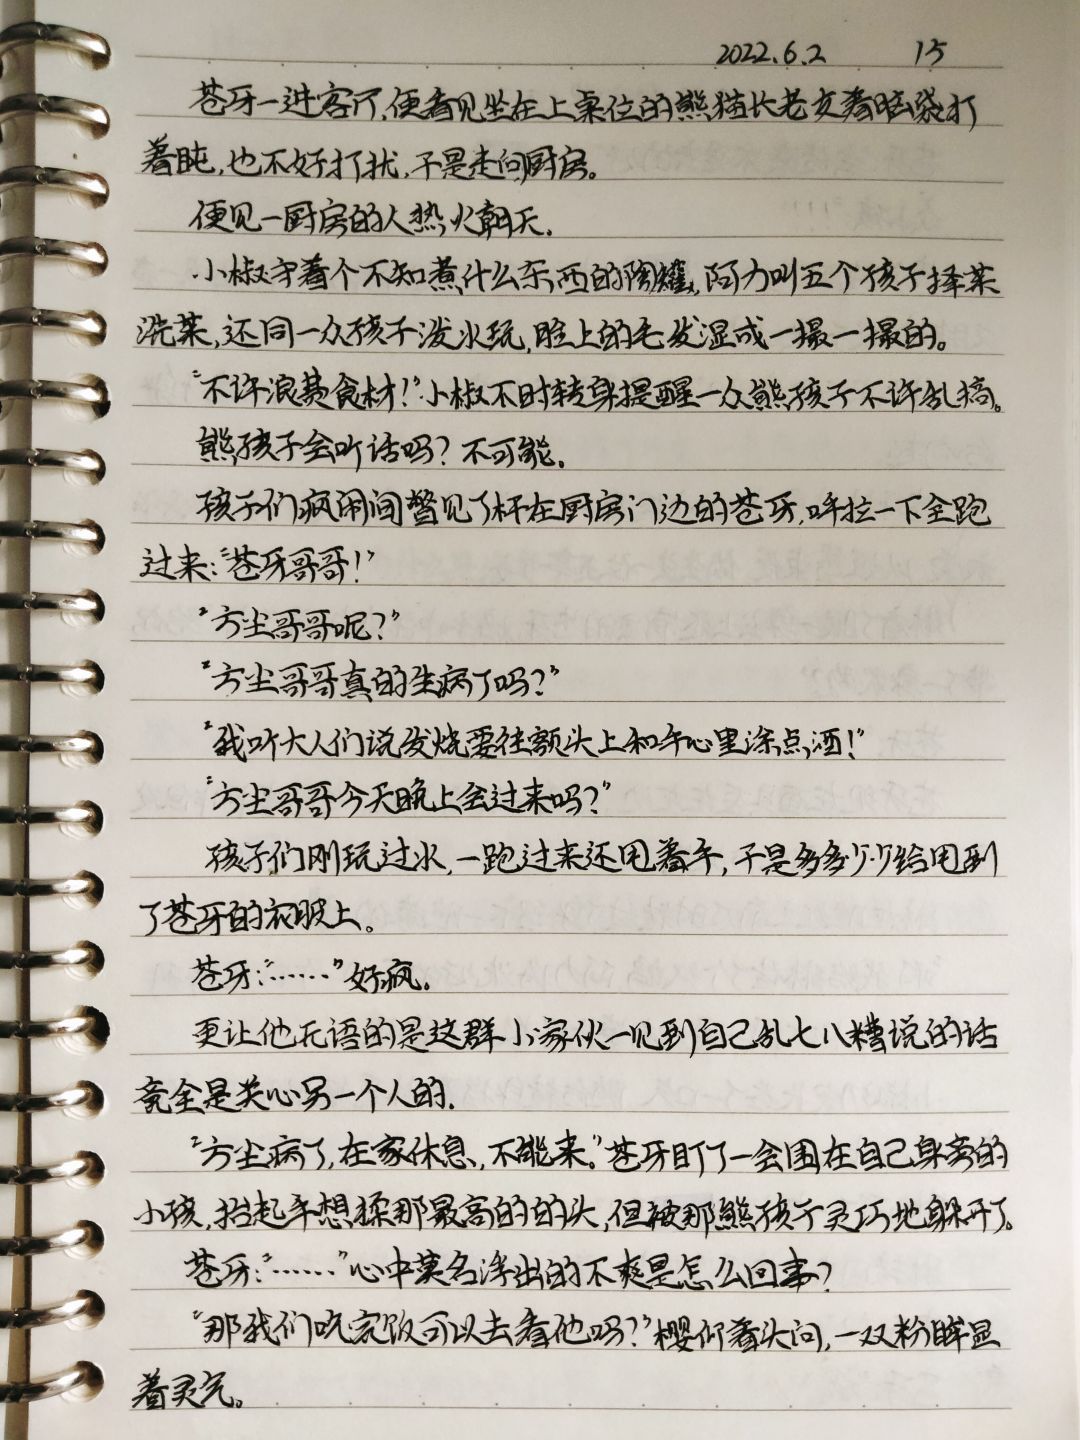 2022.6.2 15
苍牙一进客厅,便看见坐在上桌位的熊猫长老支着脑袋打
着盹,也不好打扰,于是走向厨房。
便见一厨房的人热火朝天.
小椒守着个不知煮什么东西的陶罐,阿力叫五个孩子择菜
洗菜,还同一众孩子泼水玩,脸上的毛发湿成一撮一撮的。
"不许浪费食材!"小椒不时转身提醒一众熊孩子不许乱搞。
熊孩子会听话吗?不可能.
孩子们疯闹间瞥见了杵在厨房门边的苍牙,哗拉一下全跑
过来:"苍牙哥哥!"
"方尘哥哥呢?"
"方尘哥哥真的生病了吗?"
"我听大人们说发烧要往额头上和手心里涂点酒!"
"方尘哥哥今天晚上会过来吗?"
孩子们刚玩过水,一跑过来还甩着手,于是多多少少给甩到
了苍牙的衣服上。
苍牙:"……"好疯.
更让他无语的是这群小家伙一见到自己乱七八糟说的话
竟全是关心另一个人的.
"方尘病了,在家休息,不能来。"苍牙盯了一会围在自己身旁的
小孩,抬起手想揉那最高的的头,但被那熊孩子灵巧地躲开了。
苍牙:"……"心中莫名浮出的不爽是怎么回事?
"那我们吃完饭可以去看他吗?"樱仰着头问,一双粉眸显
着灵气。